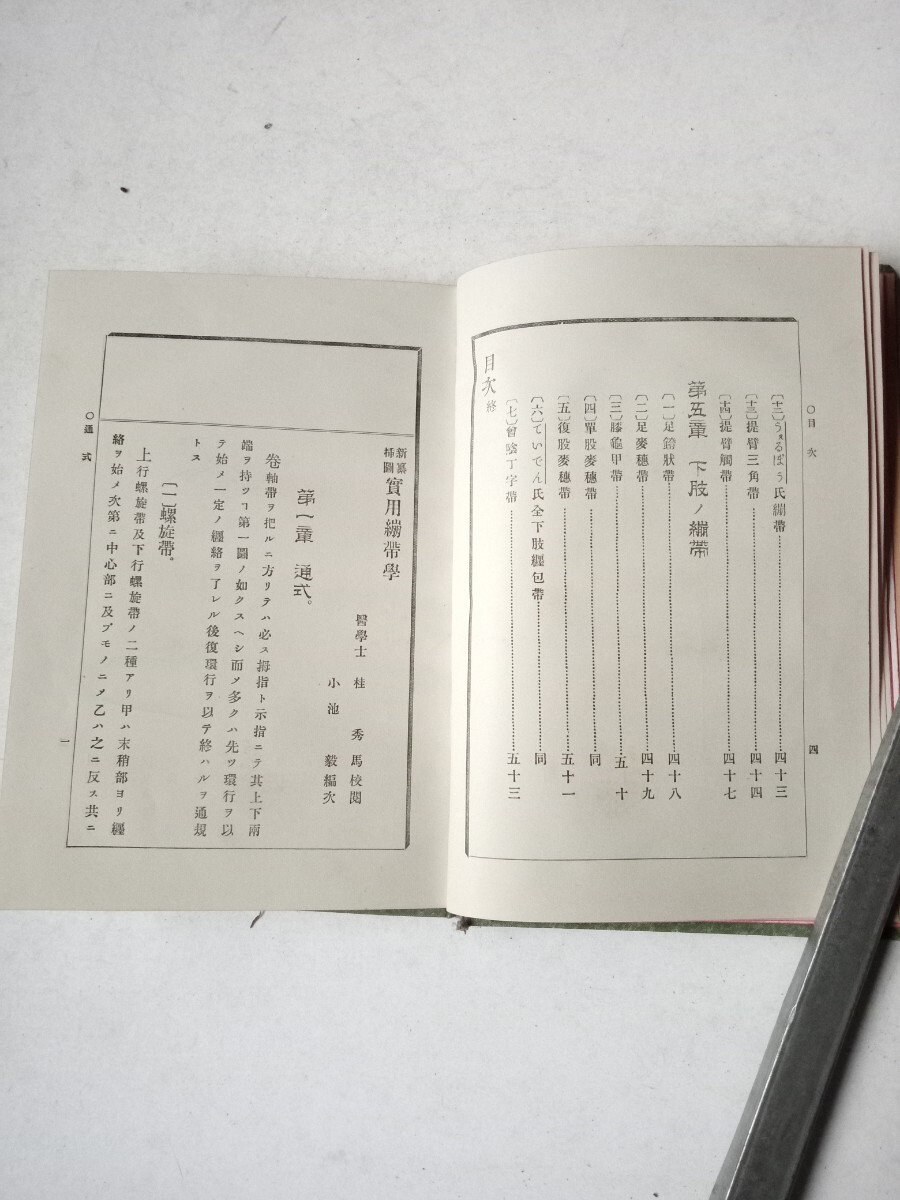 〇目次
四
〔十二〕うゑるぽう氏繃帶…四十三
〔十三〕提臂三角帶…四十四
〔十四〕提臂觸帶…四十七
第五章 下肢ノ繃帶
〔一〕足鐙狀帶…四十八
〔二〕足麥穗帶…四十九
〔三〕膝龜甲帶…五十
〔四〕單股麥穗帶…同
〔五〕復股麥穗帶…五十一
〔六〕ていでん氏全下肢纒包帶…同
〔七〕會陰丁字帶…五十三
目次終
新纂插圖 實用繃帶學
醫學士 桂秀馬校閱
小池毅編次
第一章 通式。
卷軸帶ヲ把ルニ方リテハ必ス拇指ト示指ニテ其上下兩
端ヲ持ツヿ第一圖ノ如クスヘシ而メ多クハ先ツ環行ヲ以
テ始メ一定ノ纒絡ヲ了レル後復環行ヲ以テ終ハルヲ通規
トス
〔一〕螺旋帶。
上行螺旋帶及下行螺旋帶ノ二種アリ甲ハ末稍部ヨリ纒
絡ヲ始メ次第ニ中心部ニ及ブモノニメ乙ハ之ニ反ス共ニ
〇通式
一